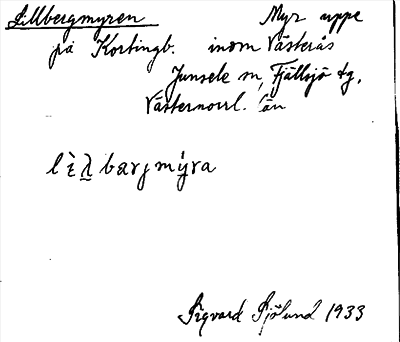 Lillbergmyren Myr uppe
på Kortingb. inom Västerås
Junsele sn, Fjällsjö tg,
Västernorrl. län
lὶλ̲ barjmýra
Sigvard Sjölund 1933